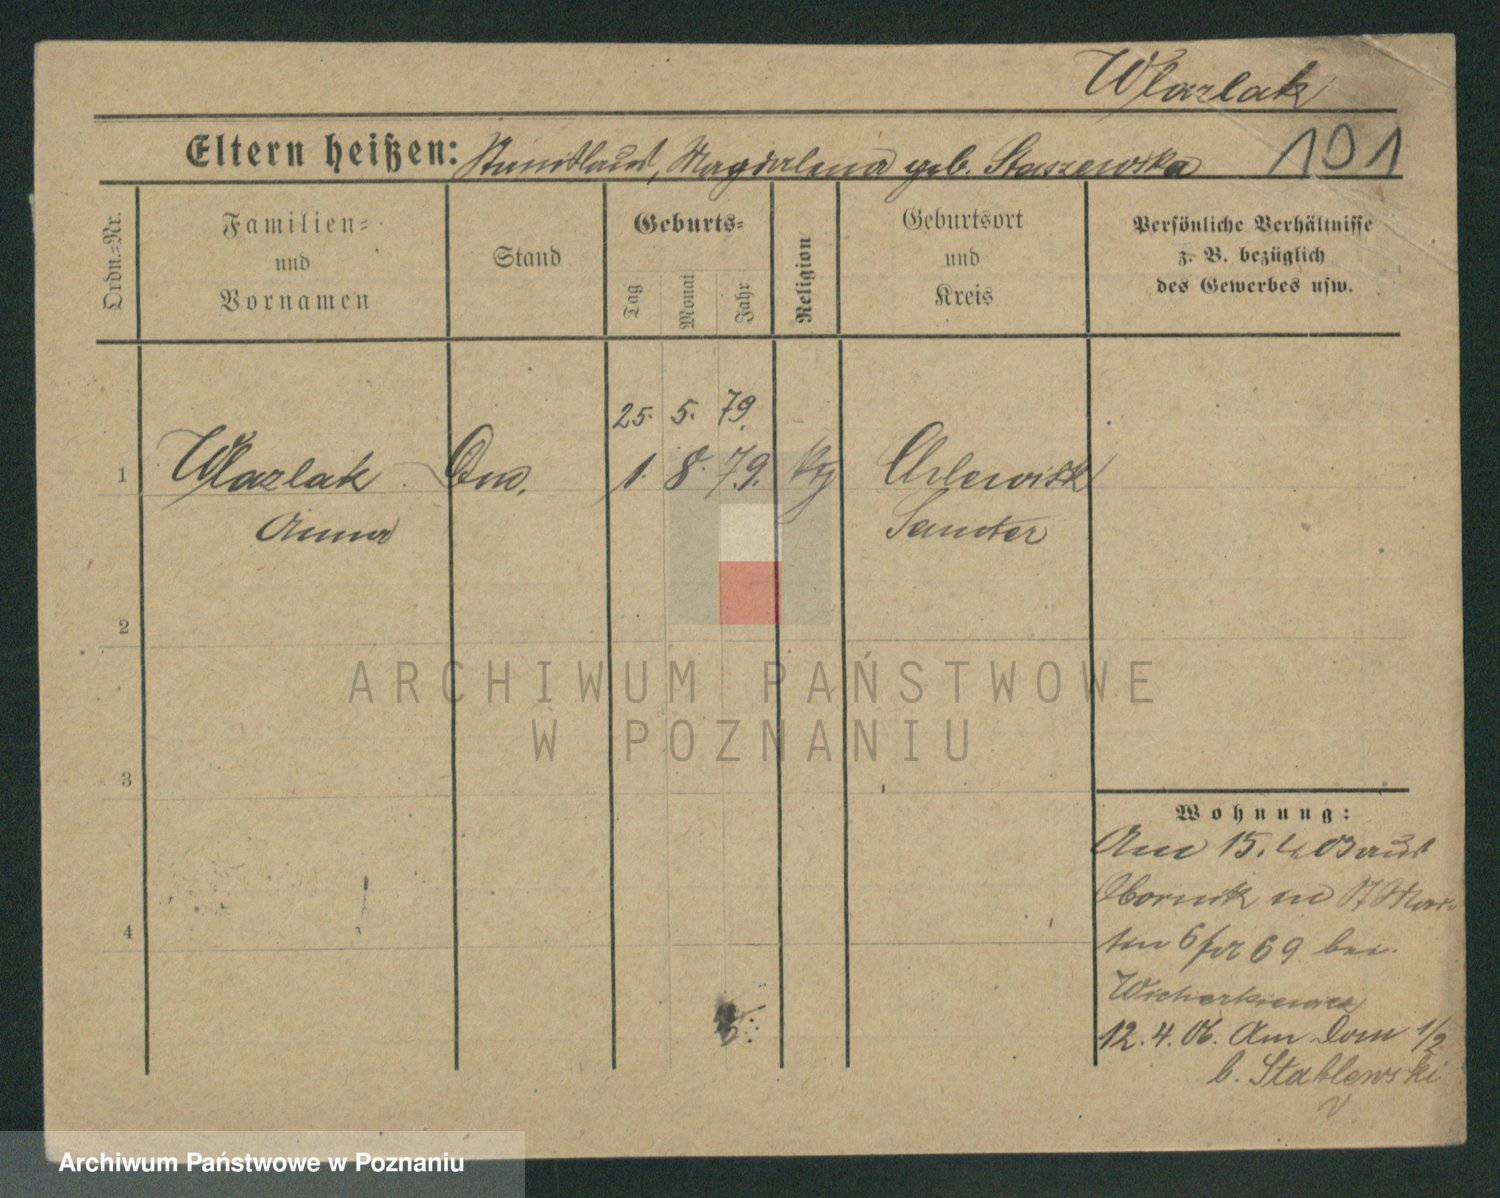 Wlazlak
Eltern heißen: Stanislaus, Magdalena geb. Staszewska 191
Ordn.=Nr.
Familien=
und
Vornamen
Stand
Geburts=
Tag
Monat
Jahr
Religion
Geburtsort
und
Kreis
Persönliche Verhältnisse
z. B. bezüglich
des Gewerbes usw.
25. 5. 79.
1 Wlazlak 1. 8. 79.
Anna Samter
2
ARCHIWUM PAŃSTWOWE
W POZNANIU
3
4
Wohnung:
Am 15. 4 03 aus
Obornik in St Mar
tin 6 69 bei
Wicherkiewicz
12. 4. 06. Am Dom 1/2
b. Stablewski
Archiwum Państwowe w Poznaniu